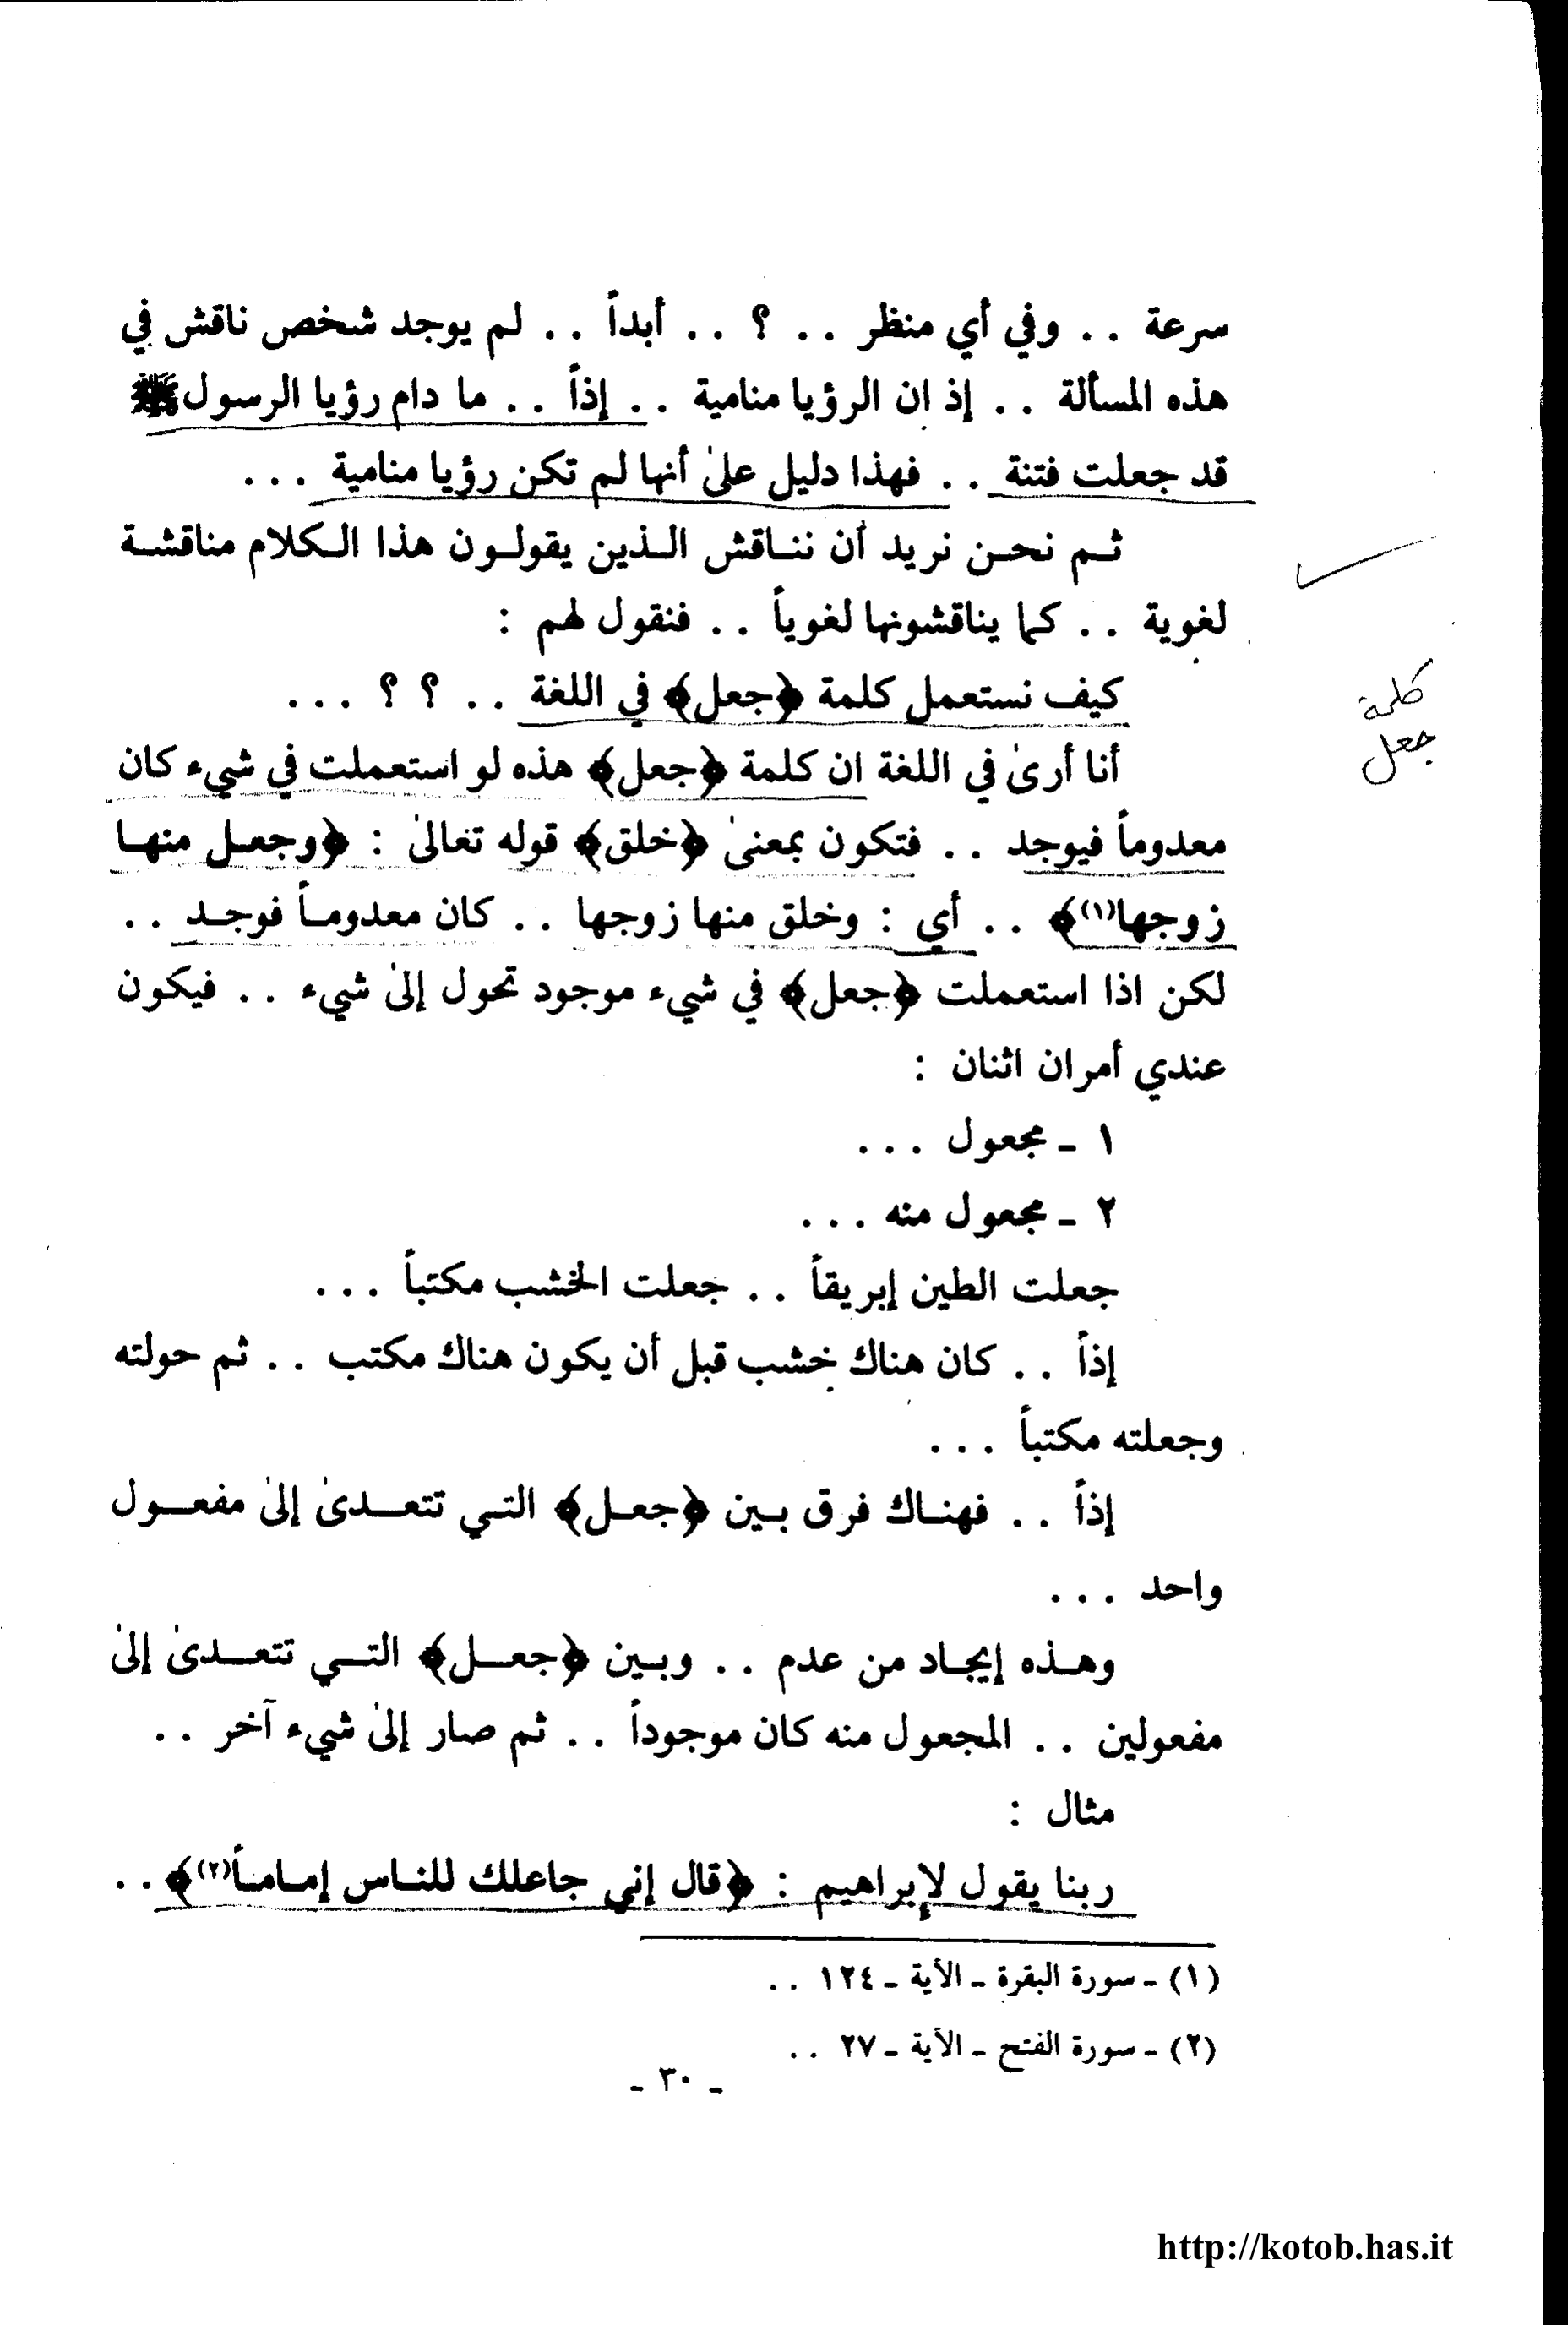 سرعة .. وفي أي منظر .. ؟ .. أبداً .. لم يوجد شخص ناقش في
هذه المسألة .. إذ ان الرؤيا منامية .. إذاً .. ما دام رؤيا الرسول ﷺ
قد جعلت فتنة .. فهذا دليل علىٰ أنها لم تكن رؤيا منامية ...
ثم نحن نريد أن نناقش الذين يقولون هذا الكلام مناقشة
لغوية .. كما يناقشونها لغوياً .. فنقول لهم :
كيف نستعمل كلمة ﴿جعل﴾ في اللغة .. ؟ ؟ ...
أنا أرىٰ في اللغة ان كلمة ﴿جعل﴾ هذه لو استعملت في شيء كان
معدوماً فيوجد .. فتكون بمعنىٰ ﴿خلق﴾ قوله تعالىٰ : ﴿وجعل منها
زوجها(١)﴾ .. أي : وخلق منها زوجها .. كان معدوماً فوجد ..
لكن اذا استعملت ﴿جعل﴾ في شيء موجود تحول إلىٰ شيء .. فيكون
عندي أمران اثنان :
١ ـ مجعول ...
٢ ـ مجعول منه ...
جعلت الطين إبريقاً .. جعلت الخشب مكتباً ...
إذاً .. كان هناك خشب قبل أن يكون هناك مكتب .. ثم حولته
وجعلته مكتباً ...
إذاً .. فهناك فرق بين ﴿جعل﴾ التي تتعدىٰ إلىٰ مفعول
واحد ...
وهذه إيجاد من عدم .. وبين ﴿جعل﴾ التي تتعدىٰ إلىٰ
مفعولين .. المجعول منه كان موجوداً .. ثم صار إلىٰ شيء آخر ..
مثال :
ربنا يقول لإبراهيم : ﴿قال إني جاعلك للناس إماماً(٢)﴾ ..
(١) ـ سورة البقرة ـ الأية ـ ١٢٤ ..
(٢) ـ سورة الفتح ـ الأية ـ ٢٧ ..
ـ ٣٠ ـ
كلمة
جعل
http://kotob.has.it